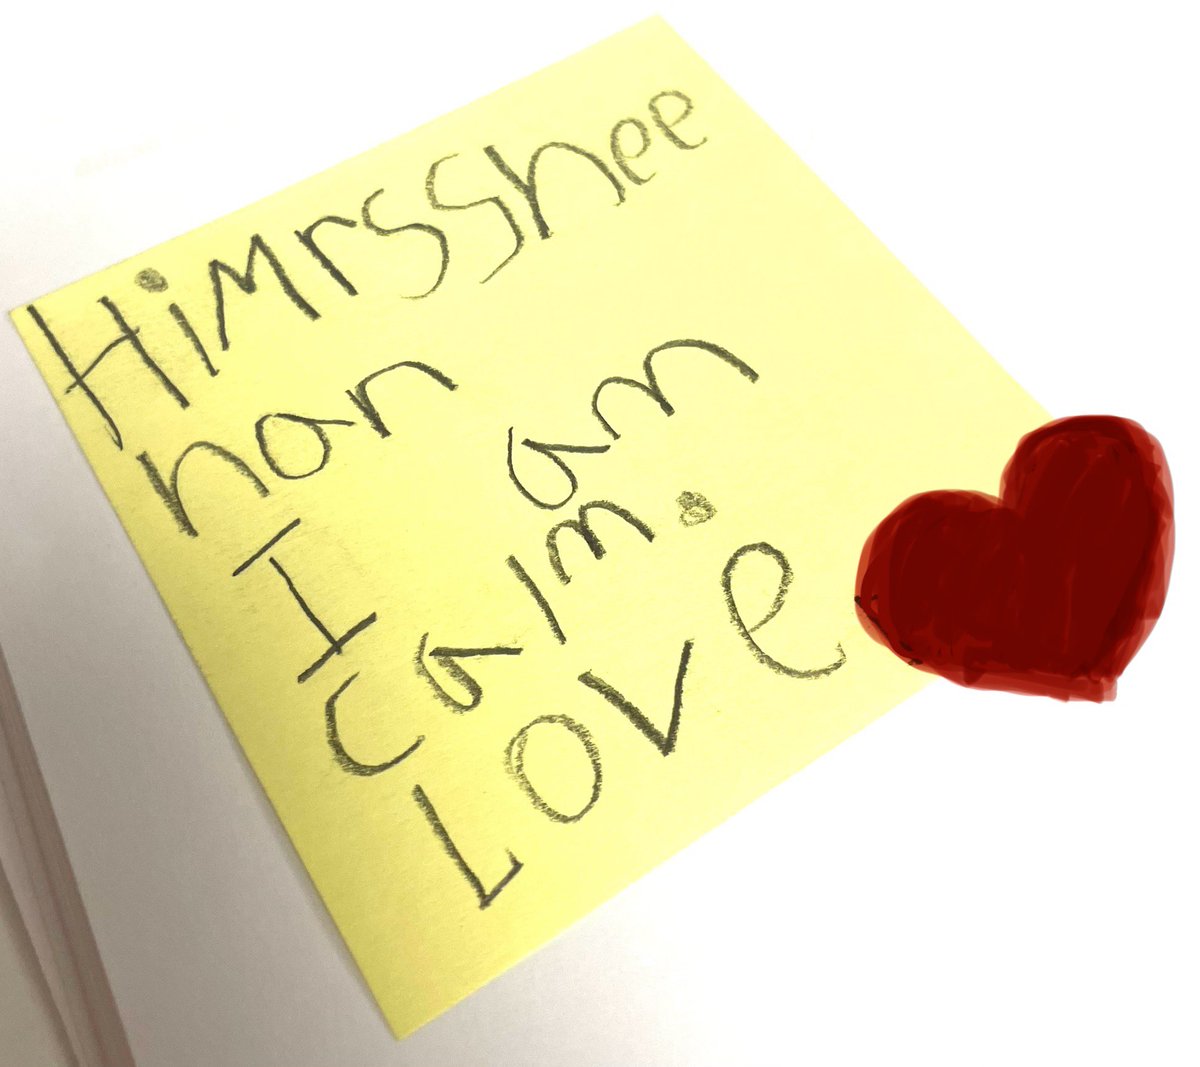 Himrsshee
nan
I am
calm.
Love